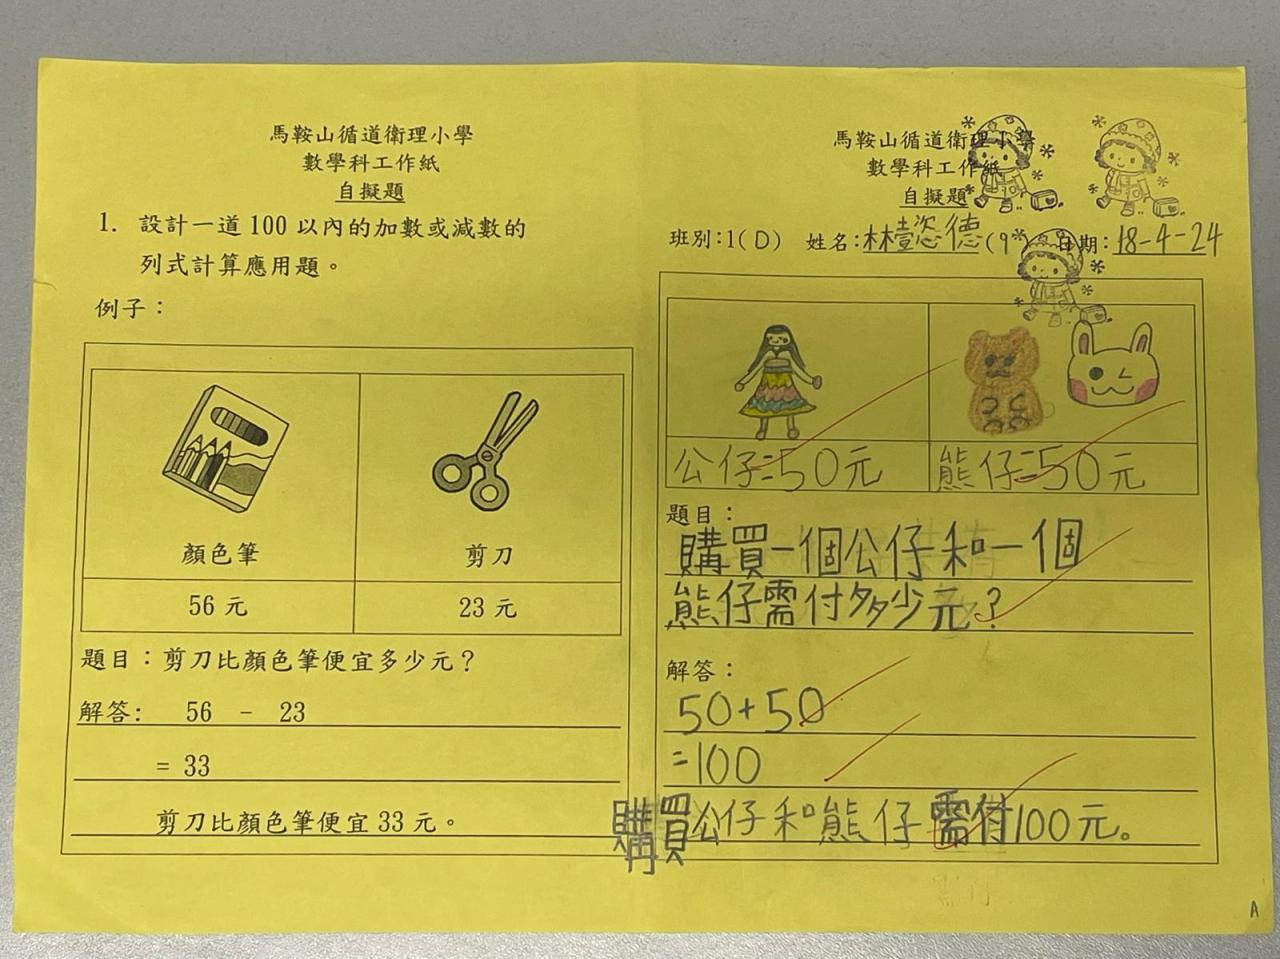 馬鞍山循道衛理小學
數學科工作紙
自擬題
1. 設計一道 100 以內的加數或減數的
列式計算應用題。
例子：
顏色筆 剪刀
56 元 23 元
題目：剪刀比顏色筆便宜多少元？
解答: 56 - 23
= 33
剪刀比顏色筆便宜 33 元。
馬鞍山循道衛理小學
數學科工作紙
自擬題
班別：1(D) 姓名：林壹恣德(9 日期：18-4-24
公仔=50元 熊仔=50元
題目：
購買一個公仔和一個
熊仔需付多少元？
解答：
50+50
=100
購買公仔和熊仔需付100元。
A